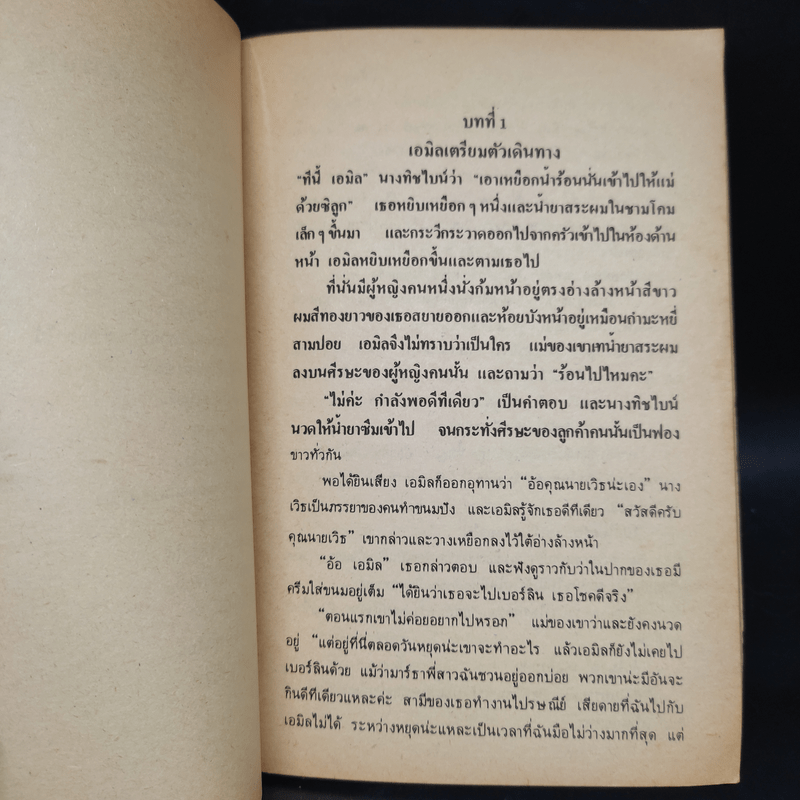 บทที่ 1
เอมิลเตรียมตัวเดินทาง
“ทีนี้ เอมิล” นางทิชไบน์ว่า “เอาเหยือกน้ำร้อนนั่นเข้าไปให้แม่
ด้วยซิลูก” เธอหยิบเหยือก ๆ หนึ่งและน้ำยาสระผมในชามโคม
เล็ก ๆ ขึ้นมา และกระวีกระวาดออกไปจากครัวเข้าไปในห้องด้าน
หน้า เอมิลหยิบเหยือกขึ้นและตามเธอไป
ที่นั่นมีผู้หญิงคนหนึ่งนั่งก้มหน้าอยู่ตรงอ่างล้างหน้าสีขาว
ผมสีทองยาวของเธอสยายออกและห้อยบังหน้าอยู่เหมือนกำมะหยี่
สามปอย เอมิลจึงไม่ทราบว่าเป็นใคร แม่ของเขาเทน้ำยาสระผม
ลงบนศีรษะของผู้หญิงคนนั้น และถามว่า “ร้อนไปไหมคะ”
“ไม่ค่ะ กำลังพอดีทีเดียว” เป็นคำตอบ และนางทิชไบน์
นวดให้น้ำยาซึมเข้าไป จนกระทั่งศีรษะของลูกค้าคนนั้นเป็นฟอง
ขาวทั่วกัน
พอได้ยินเสียง เอมิลก็ออกอุทานว่า “อ้อคุณนายเวิธน่ะเอง” นาง
เวิธเป็นภรรยาของคนทำขนมปัง และเอมิลรู้จักเธอดีทีเดียว “สวัสดีครับ
คุณนายเวิธ” เขากล่าวและวางเหยือกลงไว้ใต้อ่างล้างหน้า
“อ้อ เอมิล” เธอกล่าวตอบ และฟังดูราวกับว่าในปากของเธอมี
ครีมใส่ขนมอยู่เต็ม “ได้ยินว่าเธอจะไปเบอร์ลิน เธอโชคดีจริง”
“ตอนแรกเขาไม่ค่อยอยากไปหรอก” แม่ของเขาว่าและยังคงนวด
อยู่ “แต่อยู่ที่นี่ตลอดวันหยุดน่ะเขาจะทำอะไร แล้วเอมิลก็ยังไม่เคยไป
เบอร์ลินด้วย แม้ว่ามาร์ธาพี่สาวฉันชวนอยู่ออกบ่อย พวกเขาน่ะมีอันจะ
กินดีทีเดียวแหละค่ะ สามีของเธอทำงานไปรษณีย์ เสียดายที่ฉันไปกับ
เอมิลไม่ได้ ระหว่างหยุดน่ะแหละเป็นเวลาที่ฉันมือไม่ว่างมากที่สุด แต่